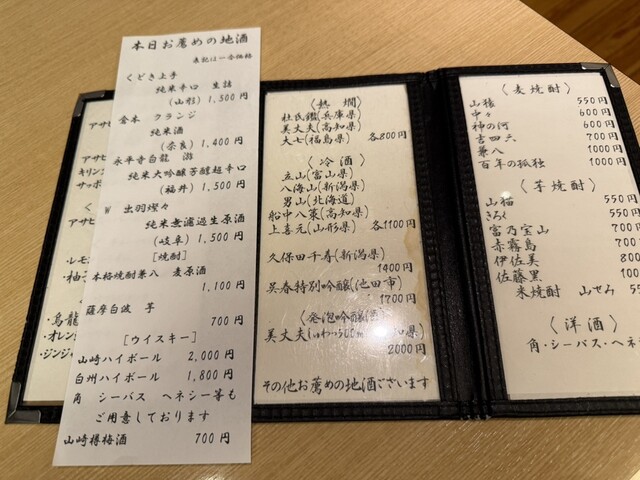 本日お薦めの地酒
表記は一合価格
くどき上手
純米辛口 生詰
(山形) 1,500円
倉本 クランジ
純米酒
(奈良) 1,400円
永平寺白龍 游
純米大吟醸芳醇超辛口
(福井) 1,500円
W 出羽燦々
純米無濾過生原酒
(岐阜) 1,500円
[焼酎]
本格焼酎兼八 麦原酒
1,100円
薩摩白波 芋
700円
[ウイスキー]
山崎ハイボール 2,000円
白州ハイボール 1,800円
角 シーバス ヘネシー等も
ご用意しております
山崎樽梅酒 700円
アサヒ
アサヒ
キリン
サッポ
アサヒ
・レモ
・柚子
・烏龍
・オレン
・ジンジャ
〈熱燗〉
杜氏鑑(兵庫県)
美丈夫(高知県)
大七(福島県) 各800円
〈冷酒〉
立山(富山県)
八海山(新潟県)
男山(北海道)
船中八策(高知県)
上喜元(山形県) 各1100円
久保田千寿(新潟県)
1400円
呉春特別吟醸(池田市)
1700円
〈発泡吟醸酒
美丈夫 知県)
2000円
その他お薦めの地酒ございます
〈麦焼酎〉
山猿 550円
中々 600円
神の河 600円
吉四六 700円
兼八 1000円
百年の孤独 1000円
〈芋焼酎〉
山猫 550円
きろく 550円
富乃宝山 700円
赤霧島 700
伊佐美 800
佐藤黒 100
米焼酎 山せみ 55
〈洋酒〉
角・シーバス・ヘネシ